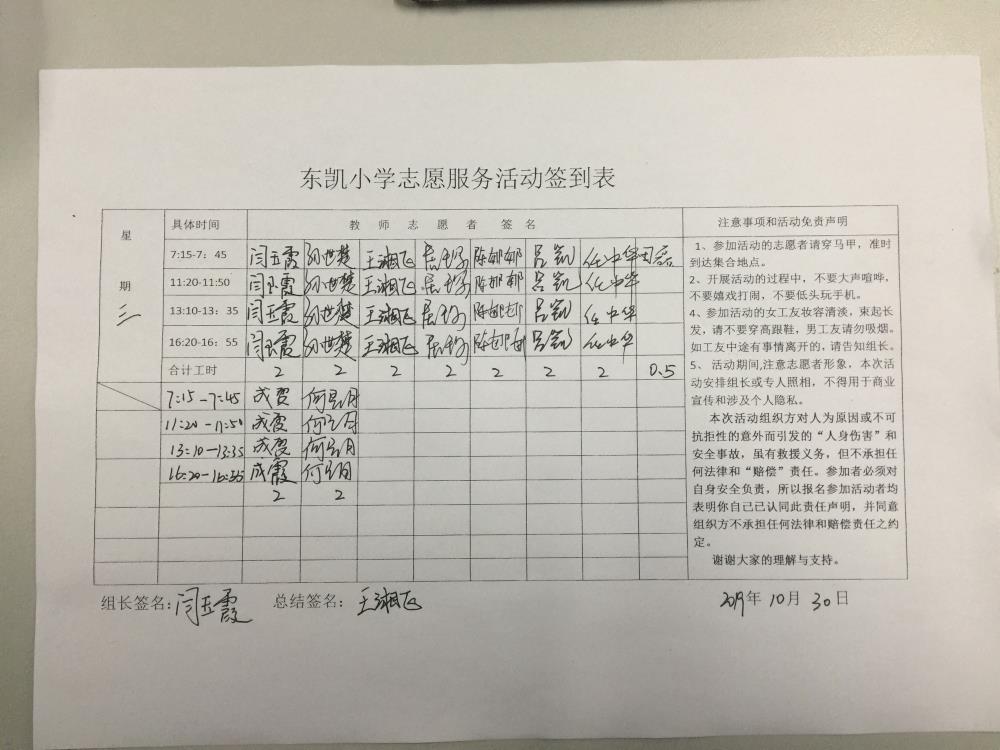 东凯小学志愿服务活动签到表
星期三 具体时间 教师志愿者签名 注意事项和活动免责声明
7:15-7：45 闫玉霞 孙世楚 王湘飞 陈娜娜 吕凯 任中华
11:20-11:50 闫玉霞 孙世楚 王湘飞 陈娜娜 吕凯 任中华
13:10-13：35 闫玉霞 孙世楚 王湘飞 陈娜娜 吕凯 任中华
16:20-16：55 闫玉霞 孙世楚 王湘飞 陈娜娜 吕凯 任中华
合计工时 2 2 2 2 2 2 2 0.5
7:15-7:45 成霞
11:20-11:50 成霞
13:10-13:35 成霞
16:20-16:55 成霞
2 2
1、参加活动的志愿者请穿马甲，准时
到达集合地点。
2、开展活动的过程中，不要大声喧哗，
不要嬉戏打闹，不要低头玩手机。
4、参加活动的女工友妆容清淡，束起长
发，请不要穿高跟鞋，男工友请勿吸烟。
如工友中途有事情离开的，请告知组长。
5、 活动期间,注意志愿者形象，本次活
动安排组长或专人照相，不得用于商业
宣传和涉及个人隐私。
本次活动组织方对人为原因或不可
抗拒性的意外而引发的“人身伤害”和
安全事故，虽有救援义务，但不承担任
何法律和“赔偿”责任。参加者必须对
自身安全负责，所以报名参加活动者均
表明你自己已认同此责任声明，并同意
组织方不承担任何法律和赔偿责任之约
定。
谢谢大家的理解与支持。
组长签名：闫玉霞 总结签名：王湘飞 2019年10月30日